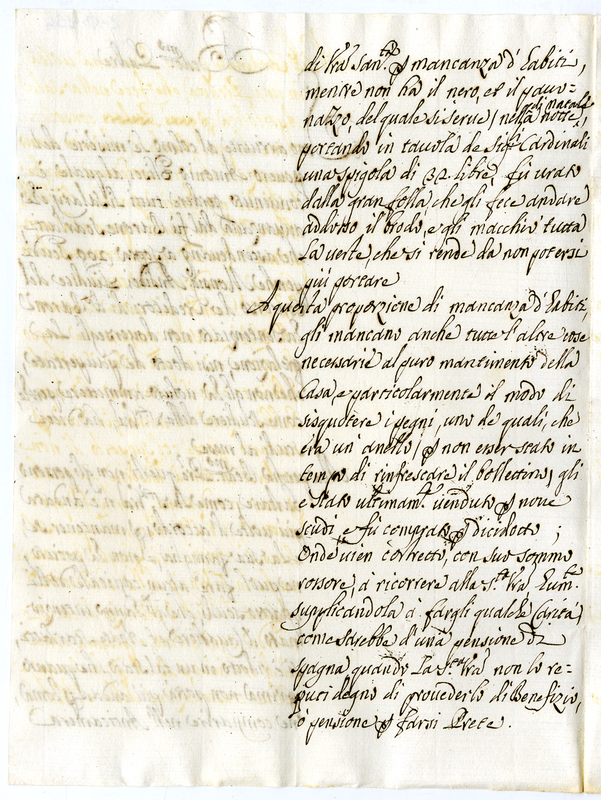 di Vrã San.tà p mancanza d'habiti,
mentre non hà il nero, et il pauo-
nazzo, del quale si serue, nella notte,
di natale
portando in tauola de Sig.i Cardinali
una spigola di 32 libre, fù urato
dalla gran folla, che gli fece andare
addosso il brodo, e gli macchiò tutta
la ueste, che si rende da non potersi
più portare
A questa proporzione di mancanza d'habiti,
gli mancano anche tutte l'altre cose
necessarie al puro mantimento della
Casa, e particolarmente il modo di
risquotere i pegni, uno de quali, che
era un'anello, p non esser stato in
tempo di rinfrescare il bollettino, gli
e stato ultimam.te uenduto p noue
scudi, e fù comprato p dicidotto;
Onde uien costretto, con suo sommo
rossore, à ricorrere alla S.tà Vrã hum.te
supplicandola à fargli qualche Carità,
come sarebbe d'una pensione di
Spagna quando la S.tà Vrã non lo re-
puti degno di prouederlo di Benefizio,
o pensione p farsi Prete.